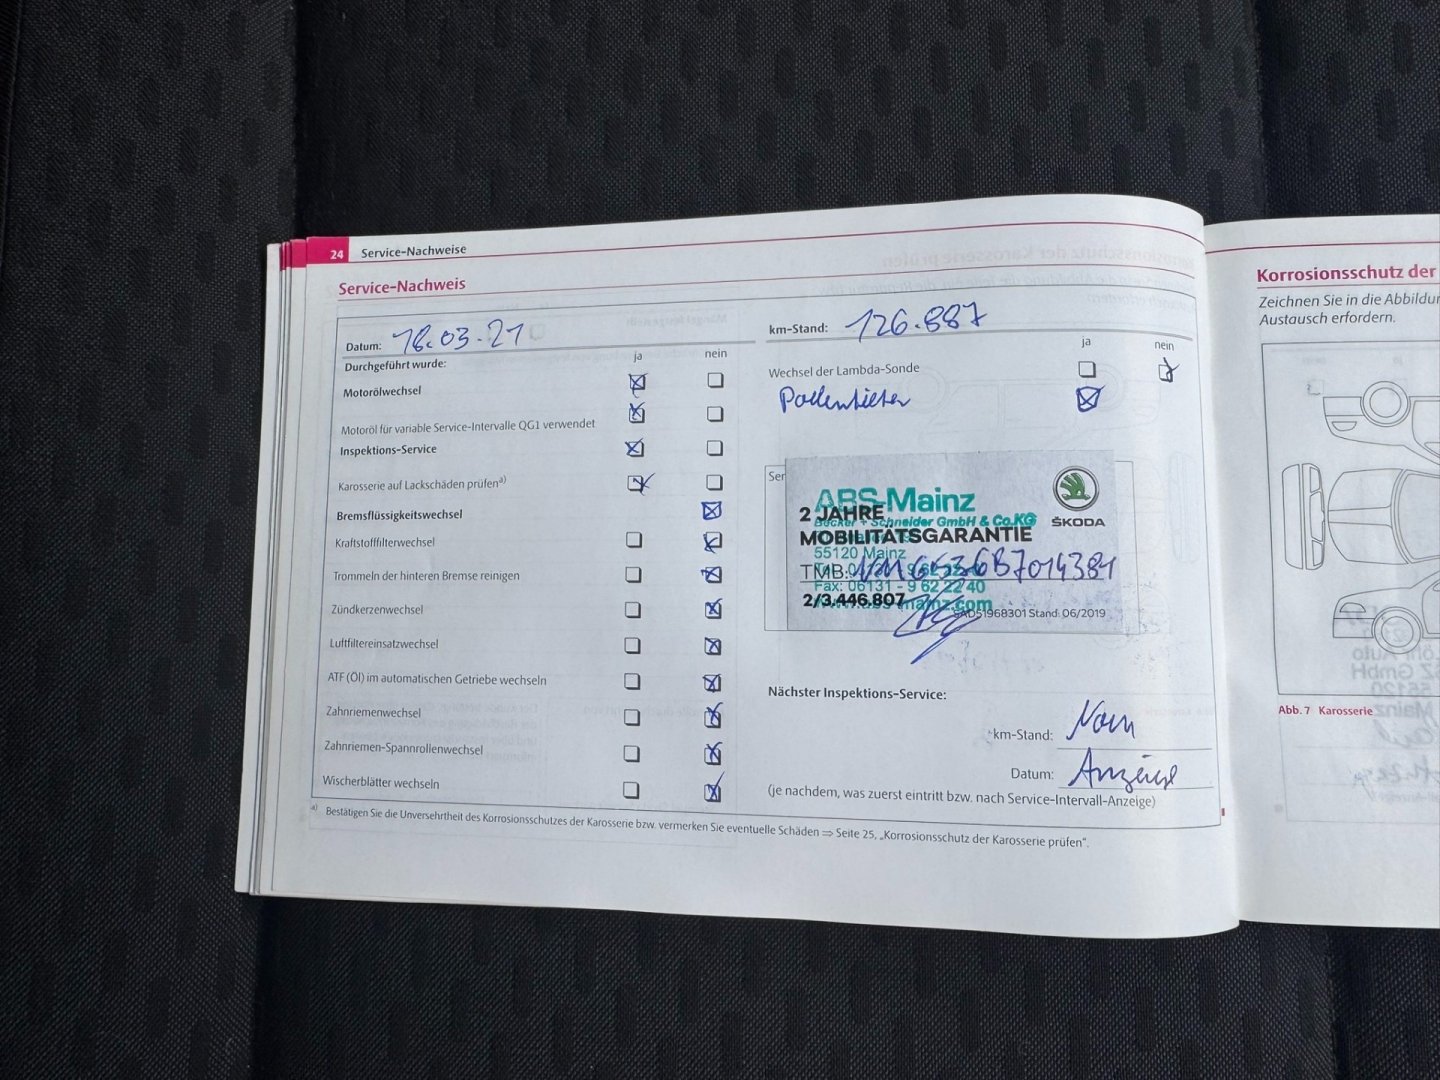 24 Service-Nachweise
Service-Nachweis
Datum: 18.03.21
km-Stand: 126.887
Durchgeführt wurde:
ja nein
Motorölwechsel
Motoröl für variable Service-Intervalle QG1 verwendet
Inspektions-Service
Karosserie auf Lackschäden prüfen a)
Bremsflüssigkeitswechsel
Kraftstofffilterwechsel
Trommeln der hinteren Bremse reinigen
Zündkerzenwechsel
Luftfiltereinsatzwechsel
ATF (Öl) im automatischen Getriebe wechseln
Zahnriemenwechsel
Zahnriemen-Spannrollenwechsel
Wischerblätter wechseln
ja nein
Wechsel der Lambda-Sonde
Pollenfilter
Ser
ABS-Mainz
2 JAHRE
Becker + Schneider GmbH & Co.KG
MOBILITÄTSGARANTIE
55120 Mainz
TMB:
Fax: 06131 - 9 62 22 40
2/3.446.807
www.abs-mainz.com
SAD51968301 Stand: 06/2019
ŠKODA
Nächster Inspektions-Service:
km-Stand: Nach
Datum: Anzeige
(je nachdem, was zuerst eintritt bzw. nach Service-Intervall-Anzeige)
a) Bestätigen Sie die Unversehrtheit des Korrosionsschutzes der Karosserie bzw. vermerken Sie eventuelle Schäden ⇒ Seite 25, „Korrosionsschutz der Karosserie prüfen“.
Korrosionsschutz der
Zeichnen Sie in die Abbildu
Austausch erfordern.
Abb. 7 Karosserie